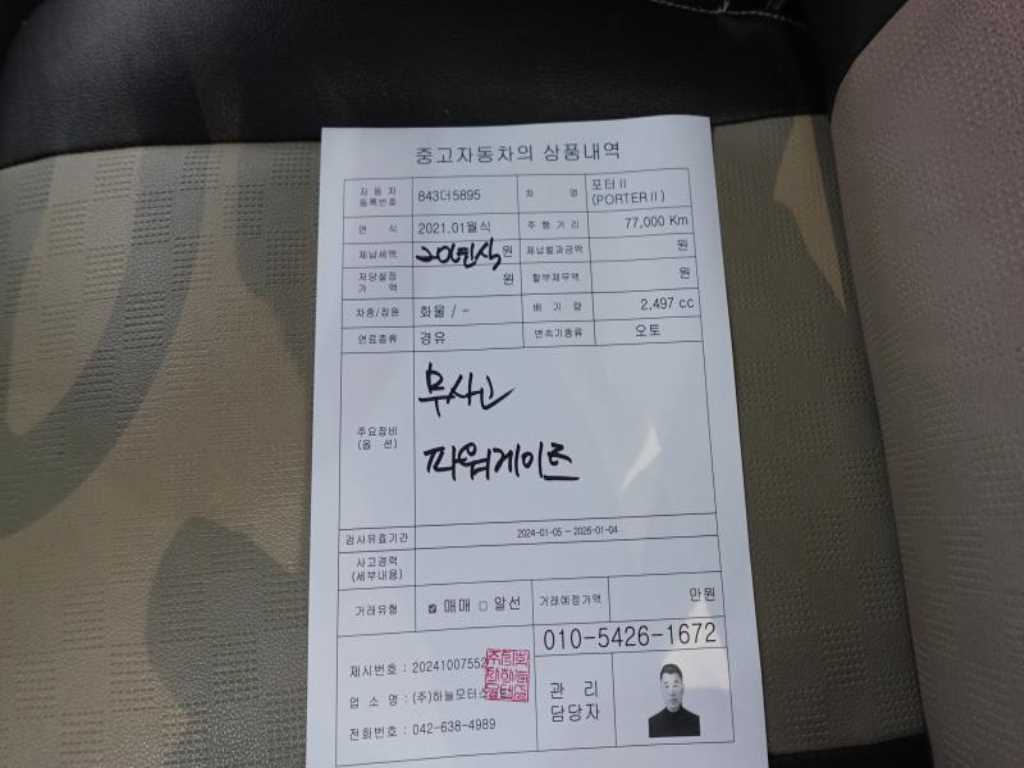 중고자동차의 상품내역
자동차 등록번호 843더5895 차 명 포터Ⅱ (PORTERⅡ)
연 식 2021.01월식 주행거리 77,000 Km
체납세액 20년식 원 체납범과금액 원
저당설정 가 액 원 할부채무액 원
차종/정원 화물 / - 배 기 량 2,497 cc
연료종류 경유 변속기종류 오토
주요장비 (옵 션) 무사고
파워게이트
검사유효기간 2024-01-05 ~ 2026-01-04
사고경력 (세부내용)
거래유형 ☑ 매매 □ 알선 거래예정가액 만원
010-5426-1672
제시번호 : 2024100755
업 소 명 : (주)하늘모터스
전화번호 : 042-638-4989
관 리 담당자